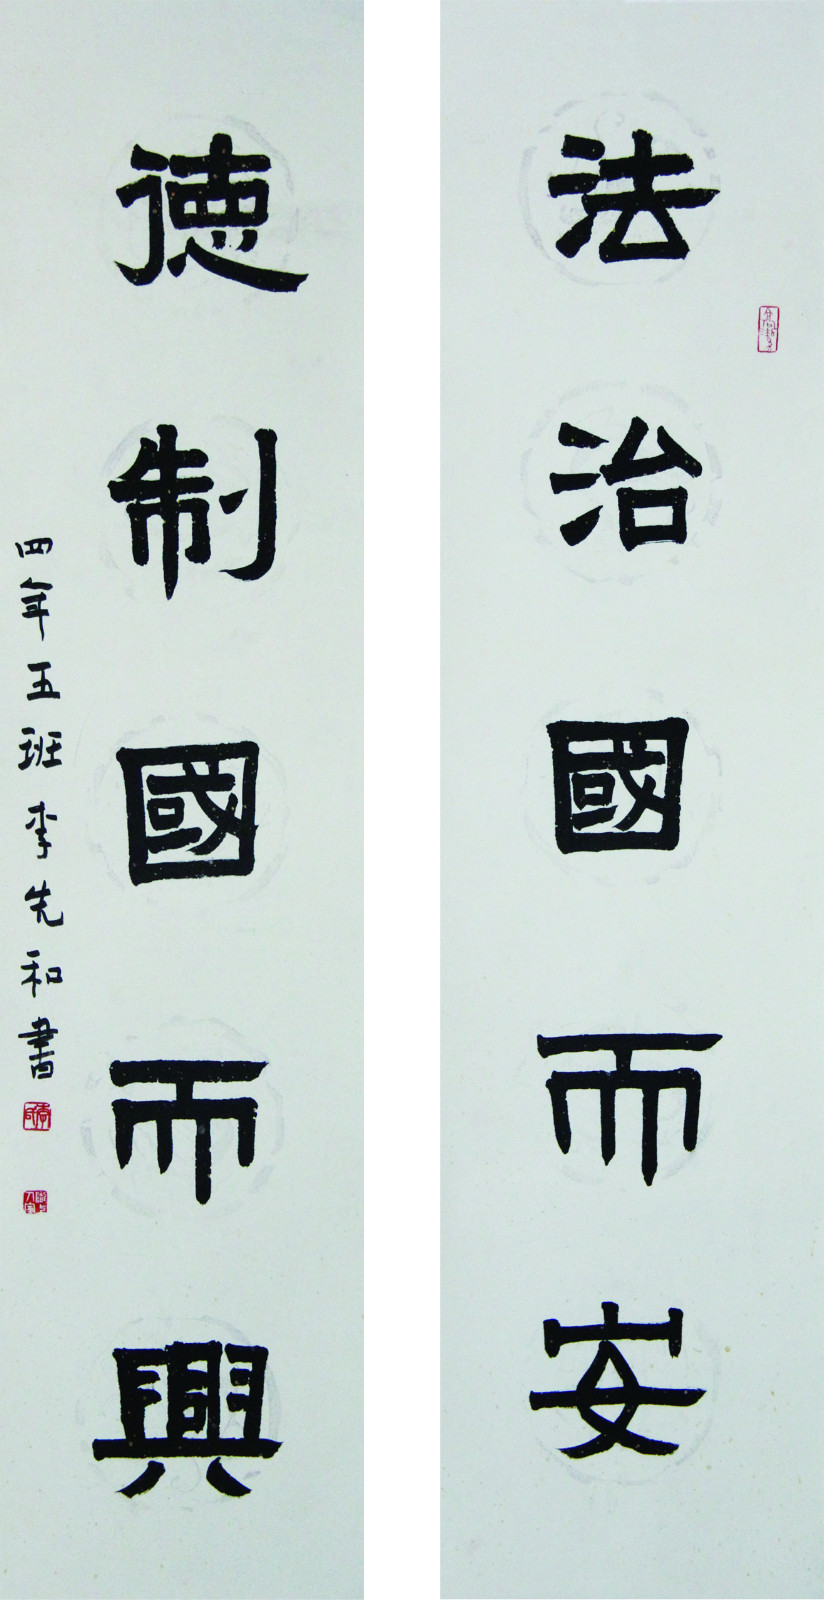 法治國而安
德制國而興
四年五班李先和書